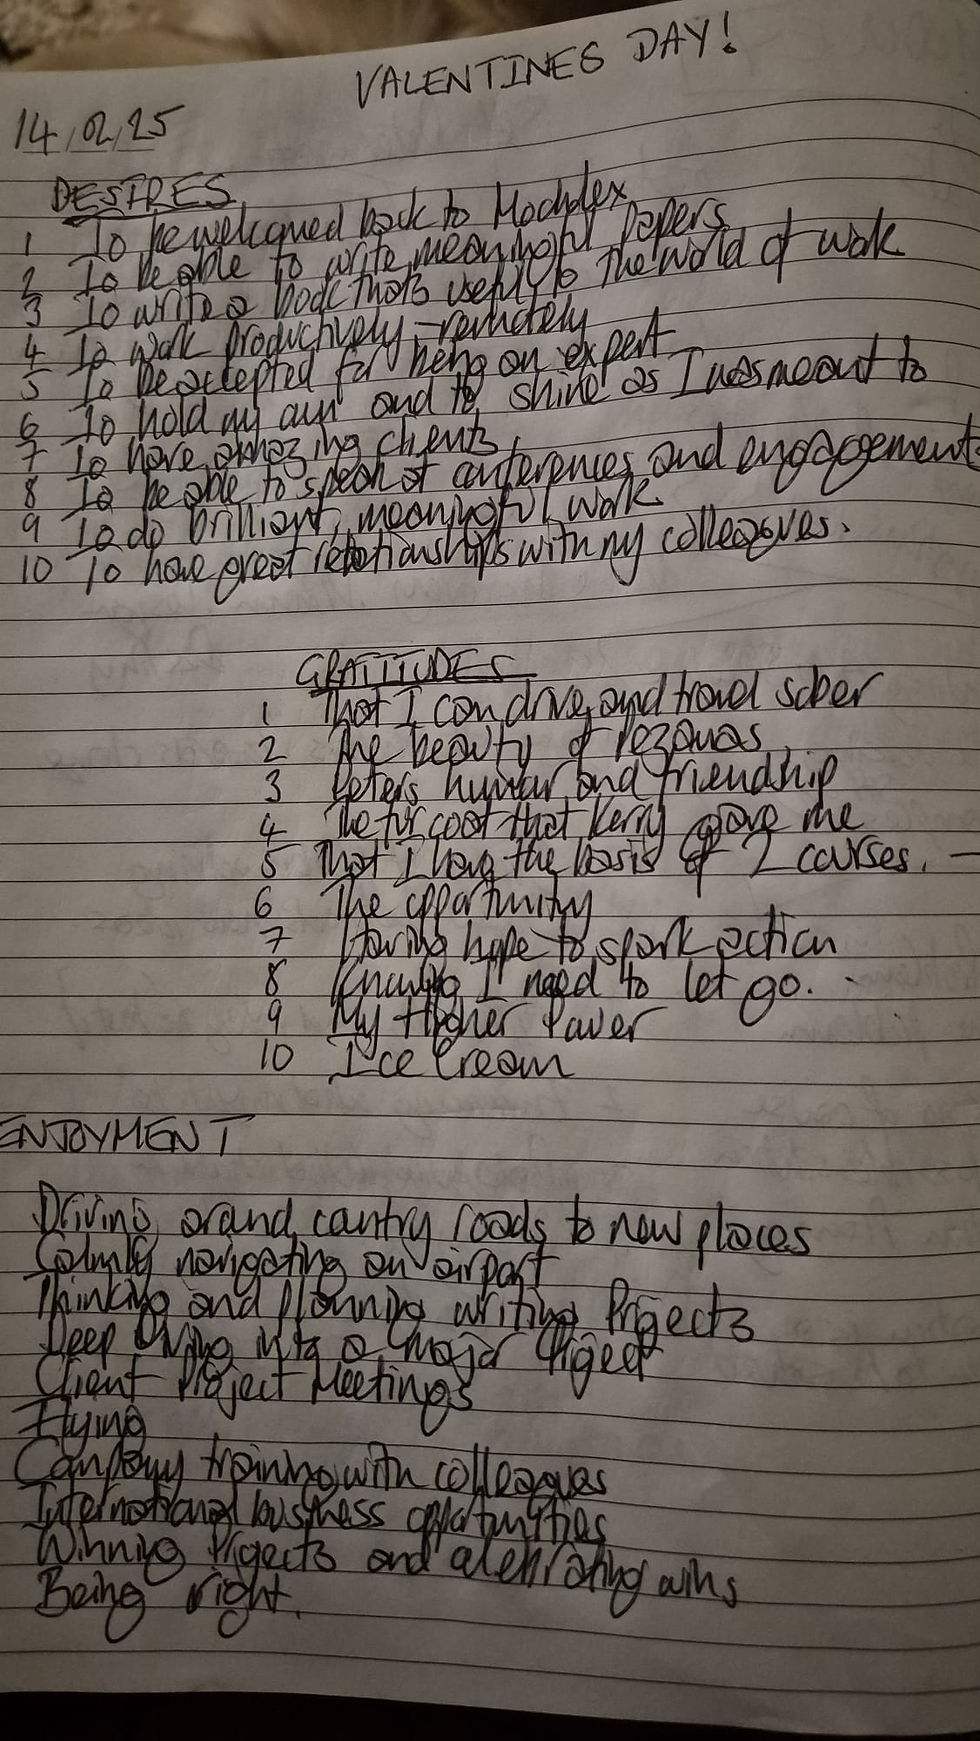 VALENTINES DAY!
14/02/25
DESIRES
1 To be welcomed back to
2 To be able to write meaningful papers
3 To write a book thats useful to the world of work
4 To work productively - remotely
5 To be accepted for being an expert
6 To hold my own and to shine as I was meant to
7 To have amazing clients
8 To be able to speak at conferences and engagements
9 To do brilliant, meaningful work
10 To have great relationships with my colleagues.
GRATITUDES
1 That I can drive and travel sober
2 The beauty of
3 Peters humour and friendship
4 The fur coat that Kerry gave me
5 That I have the basis of 2 courses. —
6 The opportunity
7 Having hope to spark action
8 Knowing I need to let go.
9 My Higher Power
10 Ice Cream
ENJOYMENT
Driving around country roads to new places
Calmly navigating an airport
Thinking and planning writing Projects
Deep Diving into a major Project
Client Project Meetings
Flying
Company training with colleagues
International business opportunities
Winning Projects and celebrating wins
Being right.